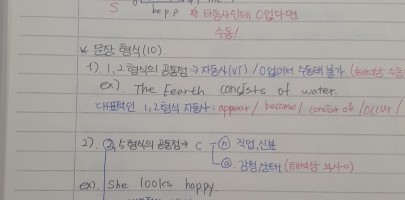 S be p.p ※ 타동사인데 O없다면
수동!
※ 문장 형식(10)
1). 1, 2형식의 공통점 → 자동사(vi) / O없어서 수동태 불가 (해석상 수동
ex) The Fearth consists of water.
대표적인 1, 2형식 자동사: appear / become / consist of / occur /
2). 2, 5형식의 공통점 → C ⓝ 직업, 신분
ⓐ 감정, 상태 (해석상 부사 0)
ex). She looks happy